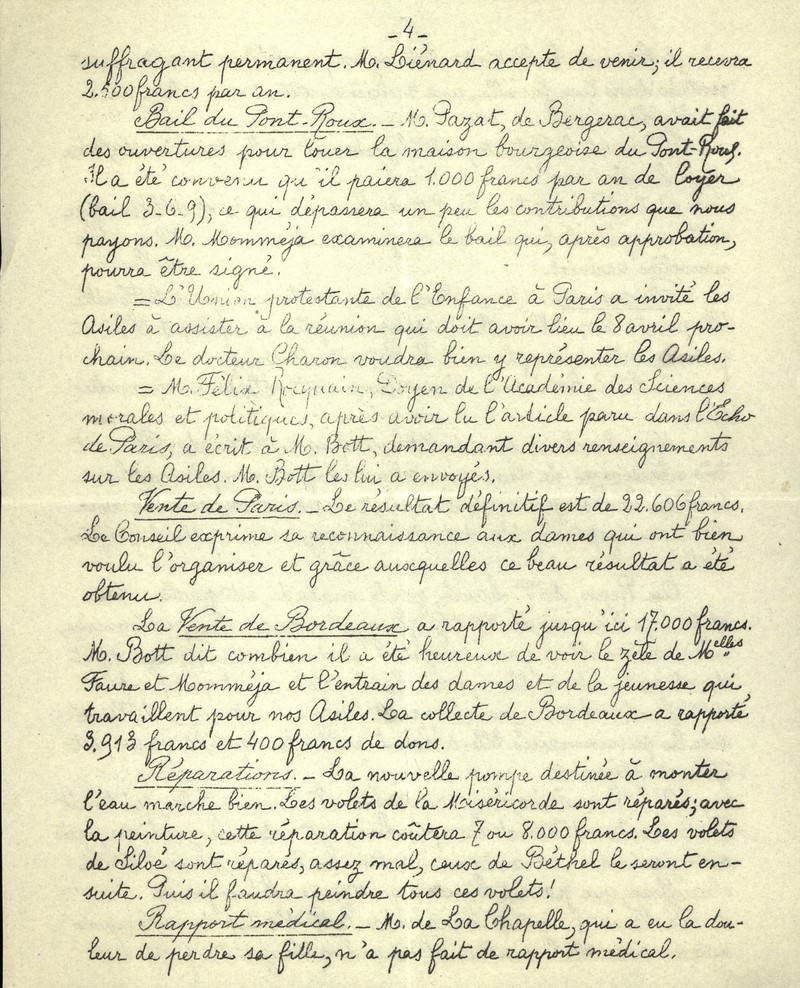 -4-
suffragant permanent. M. Liénard accepte de venir; il recevra
2.500 francs par an.
Bail du Pont-Roux. - M. Pazat, de Bergerac, avait fait
des ouvertures pour louer la maison bourgeoise du Pont-Roux.
Il a été convenu qu'il paiera 1.000 francs par an de loyer
(bail 3-6-9), ce qui dépassera un peu les contributions que nous
payons. M. Momméja examinera le bail qui, après approbation,
pourra être signé.
= L'Union protestante de l'Enfance à Paris a invité les
Asiles à assister à la réunion qui doit avoir lieu le 8 avril pro-
chain. Le docteur Charon voudra bien y représenter les Asiles.
= M. Félix Rocquain, Doyen de l'Académie des Sciences
morales et politiques, après avoir lu l'article paru dans l'Echo
de Paris, a écrit à M. Bott, demandant divers renseignements
sur les Asiles. M. Bott les lui a envoyés.
Vente de Paris. - Le résultat définitif est de 22.606 francs.
Le Conseil exprime sa reconnaissance aux dames qui ont bien
voulu l'organiser et grâce auxquelles ce beau résultat a été
obtenu.
La Vente de Bordeaux a rapporté jusqu'ici 17.000 francs.
M. Bott dit combien il a été heureux de voir le zèle de Melles
Faure et Momméja et l'entrain des dames et de la jeunesse qui
travaillent pour nos Asiles. La collecte de Bordeaux a rapporté
3.913 francs et 400 francs de dons.
Réparations. - La nouvelle pompe destinée à monter
l'eau marche bien. Les volets de la Miséricorde sont réparés; avec
la peinture, cette réparation coûtera 7 ou 8.000 francs. Les volets
de Siloé sont réparés, assez mal, ceux de Béthel le seront en-
suite. Puis il faudra peindre tous ces volets!
Rapport médical. - M. de La Chapelle, qui a eu la dou-
leur de perdre sa fille, n'a pas fait de rapport médical.